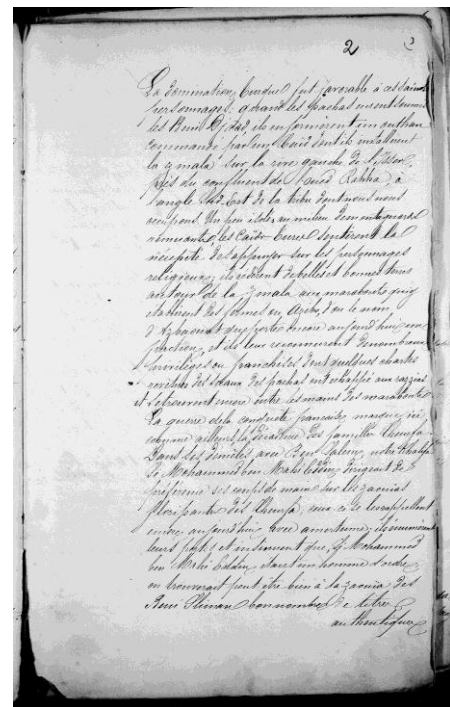 2
La domination turque fut favorable à certains
personnages; quand les pachas eurent soumis
les Beni Djâad, ils en formèrent un outhan
commandé par un Caïd dont ils installèrent
la zmala sur la rive gauche de l'Isser,
près du confluent de l'oued
l'angle Sud-Est de la tribu dont nous nous
occupons. Un peu isolés au milieu de montagnards
remuants, les Caïds turcs sentirent la
nécessité de s'appuyer sur les personnages
religieux; ils cédèrent de belles et bonnes terres
autour de la zmala aux marabouts qui y
établirent des fermes ou Azibs, d'où le nom
d' que porte encore aujourd'hui
et ils leur reconnurent de nombreux
privilèges ou franchises dont quelques chartes
revêtues des sceaux des pachas ont échappé aux razzias
et se trouvent encore entre les mains des marabouts.
La guerre de la conquête française marque ici
comme ailleurs la décadence des familles Cheurfa.
Dans ses démêlés avec Ben Salem, notre Khalifa
Si Mohammed ben Mahi Eddin, dirigeant de
préférence ses coups de main sur les zaouias
florissantes des Cheurfa, ceux-ci se le rappellent
encore aujourd'hui avec amertume; ils énumèrent
leurs pertes et insinuent que, Si Mohammed
ben Mahi Eddin, étant un homme d'ordre,
on trouverait peut être bien à la zaouia des
Beni Sliman bon nombre de titres
authentiques